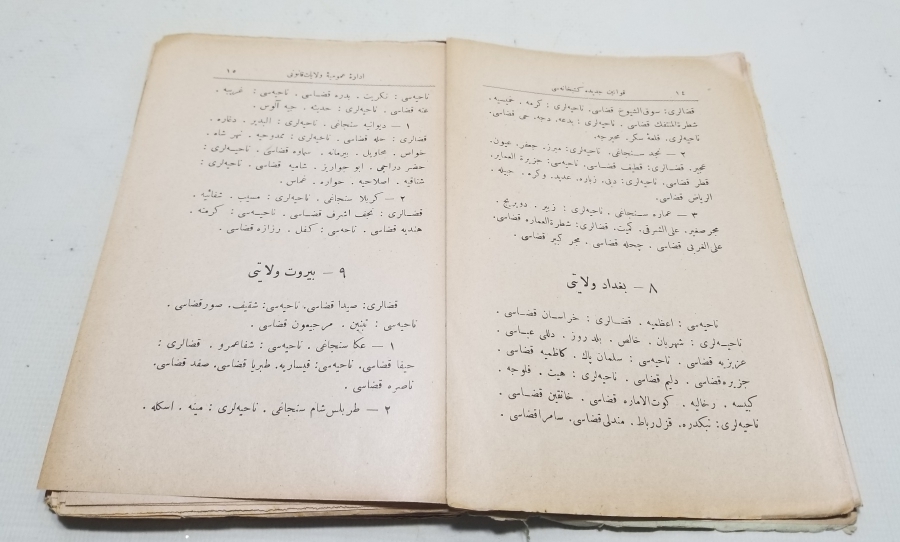 ١٤ قوانین جدیده کتبخانه‌سی
قضالری: سوق‌الشیوخ قضاسی. ناحیه‌لری: کرمه. خمیسیه.
شطرة‌المنتفك قضاسی. ناحیه‌لری: بدعه. دجه. حی قضاسی.
ناحیه‌لری. قلعة سکر. محیرجه.
٢ — نجد سنجاغی. ناحیه‌لری: مبرز. جفر. عیون.
عجیر. قضالری: قطیف قضاسی. ناحیه‌سی: جزیرة العمایر.
قطر قضاسی. ناحیه‌لری: دبی. زباره. عدید. وکره.
الریاض قضاسی.
٣ — عماره سنجاغی. ناحیه‌لری: زبیر. دویریج.
مجر صغیر. علی‌الشرقی. کمیت. قضالری: شطرة‌العماره قضاسی.
علی‌الغربی قضاسی. مجر کبیر قضاسی.
٨ — بغداد ولایتی
ناحیه‌سی: اعظمیه. قضالری: خراسان قضاسی.
ناحیه‌لری: شهربان. خالص. بلدروز. دللی عباسی.
عزیزیه قضاسی. ناحیه‌سی: سلمان پاك. کاظمیه قضاسی.
جزیره قضاسی. دلیم قضاسی. ناحیه‌لری: هیت. فلوجه.
کبیسه. رحالیه. کوت‌الاماره قضاسی. خانقین قضاسی.
ناحیه‌لری: بنکدره. قزل‌رباط. مندلی قضاسی. سامرا قضاسی
ادارهٔ عمومیهٔ ولایات قانونی ١٥
ناحیه‌سی: تکریت. بدره قضاسی. ناحیه‌سی: غریبه.
عنه قضاسی. ناحیه‌لری: حدیثه. جبه آلوس.
١ — دیوانیه سنجاغی. ناحیه‌لری: البدیر. دغاره.
قضالری: حله قضاسی. ناحیه‌لری: ممدوحیه. نهر شاه.
خواص. محاویل. بیرمانه. سماوه قضاسی. ناحیه‌لری:
حضر دراجی. ابو حواریز. شامیه قضاسی. ناحیه‌لری:
شنافیه. اصلاحیه. حواره. غماس.
٢ — کربلا سنجاغی. ناحیه‌لری: مسیب. شفاثیه.
قضالری: نجف اشرف قضاسی. ناحیه‌سی: کرفته.
هندیه قضاسی. ناحیه‌سی: کفل. رزازه قضاسی.
٩ — بیروت ولایتی
قضالری: صیدا قضاسی. ناحیه‌سی: شقیف. صور قضاسی.
ناحیه‌سی: تبنین. مرجعیون قضاسی.
١ — عکا سنجاغی. ناحیه‌سی: شفاعمرو. قضالری:
حیفا قضاسی. ناحیه‌سی: قیساریه. طبریا قضاسی. صفد قضاسی.
ناصره قضاسی.
٢ — طرابلس‌شام سنجاغی. ناحیه‌لری: مینه. اسکله.